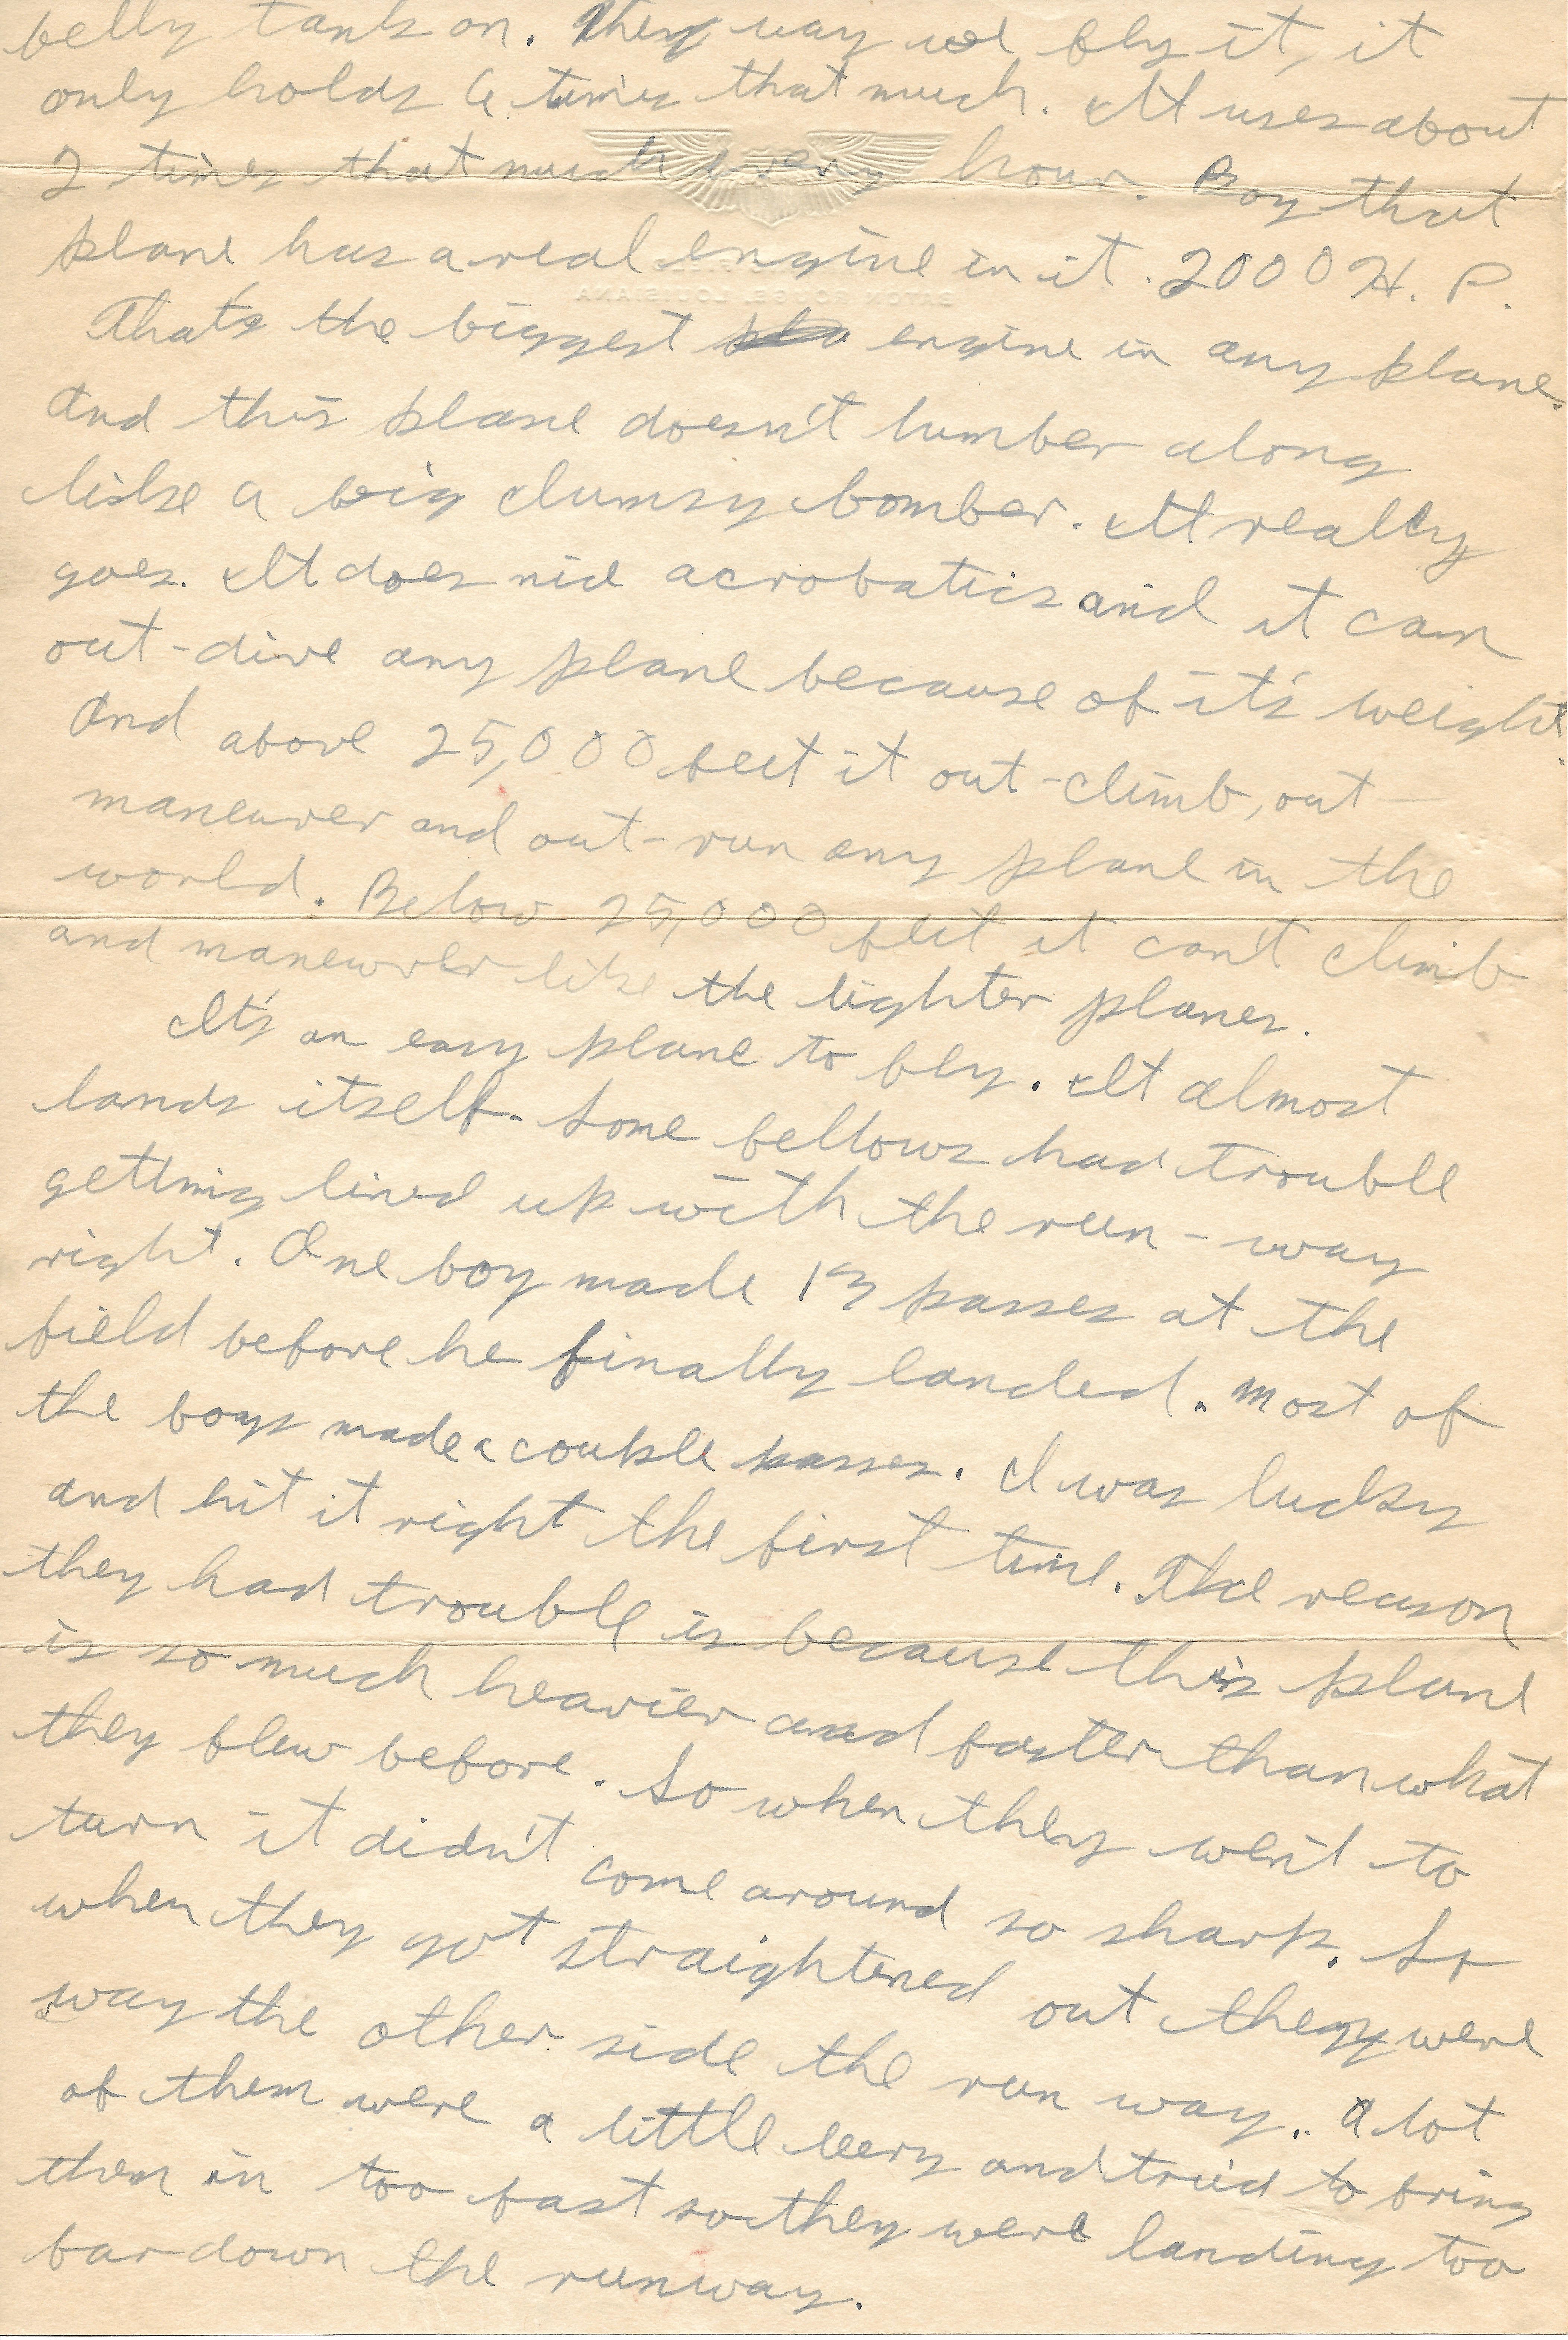 belly tank on. They way we fly it, it
only holds 6 times that much. It uses about
2 times that much every hour. Boy that
plane has a real engine in it. 2000 H. P.
BATON ROUGE, LOUISIANA
That's the biggest engine in any plane.
And this plane doesn't lumber along
like a big clumsy bomber. It really
goes. It does nice acrobatics and it can
out-dive any plane because of it's weight.
And above 25,000 feet it out-climb, out-
maneuver and out-run any plane in the
world. Below 25,000 feet it can't climb
and maneuver like the lighter planes.
It's an easy plane to fly. It almost
lands itself. Some fellows had trouble
getting lined up with the run-way
right. One boy made passes at the
field before he finally landed. Most of
the boys made a couple passes. I was lucky
and hit it right the first time. The reason
they had trouble is because this plane
is so much heavier and faster than what
they flew before. So when they went to
turn it didn't come around so sharp. So
when they got straightened out they were
way the other side the run way.. A lot
of them were a little leery and tried to bring
them in too fast so they were landing too
far down the runway.